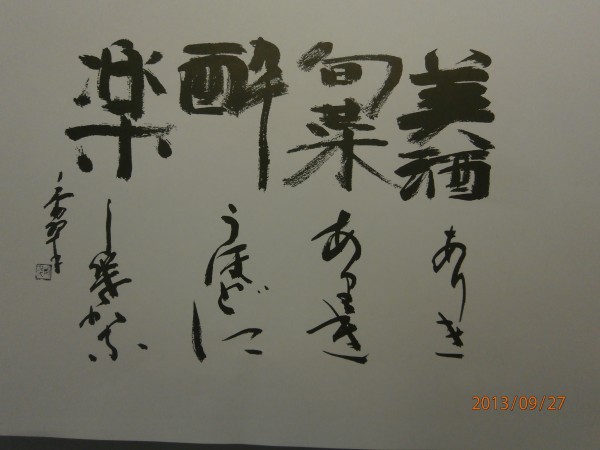 美酒ありき
旬菜ありき
酔うほどに
楽しきかな
2013/09/27